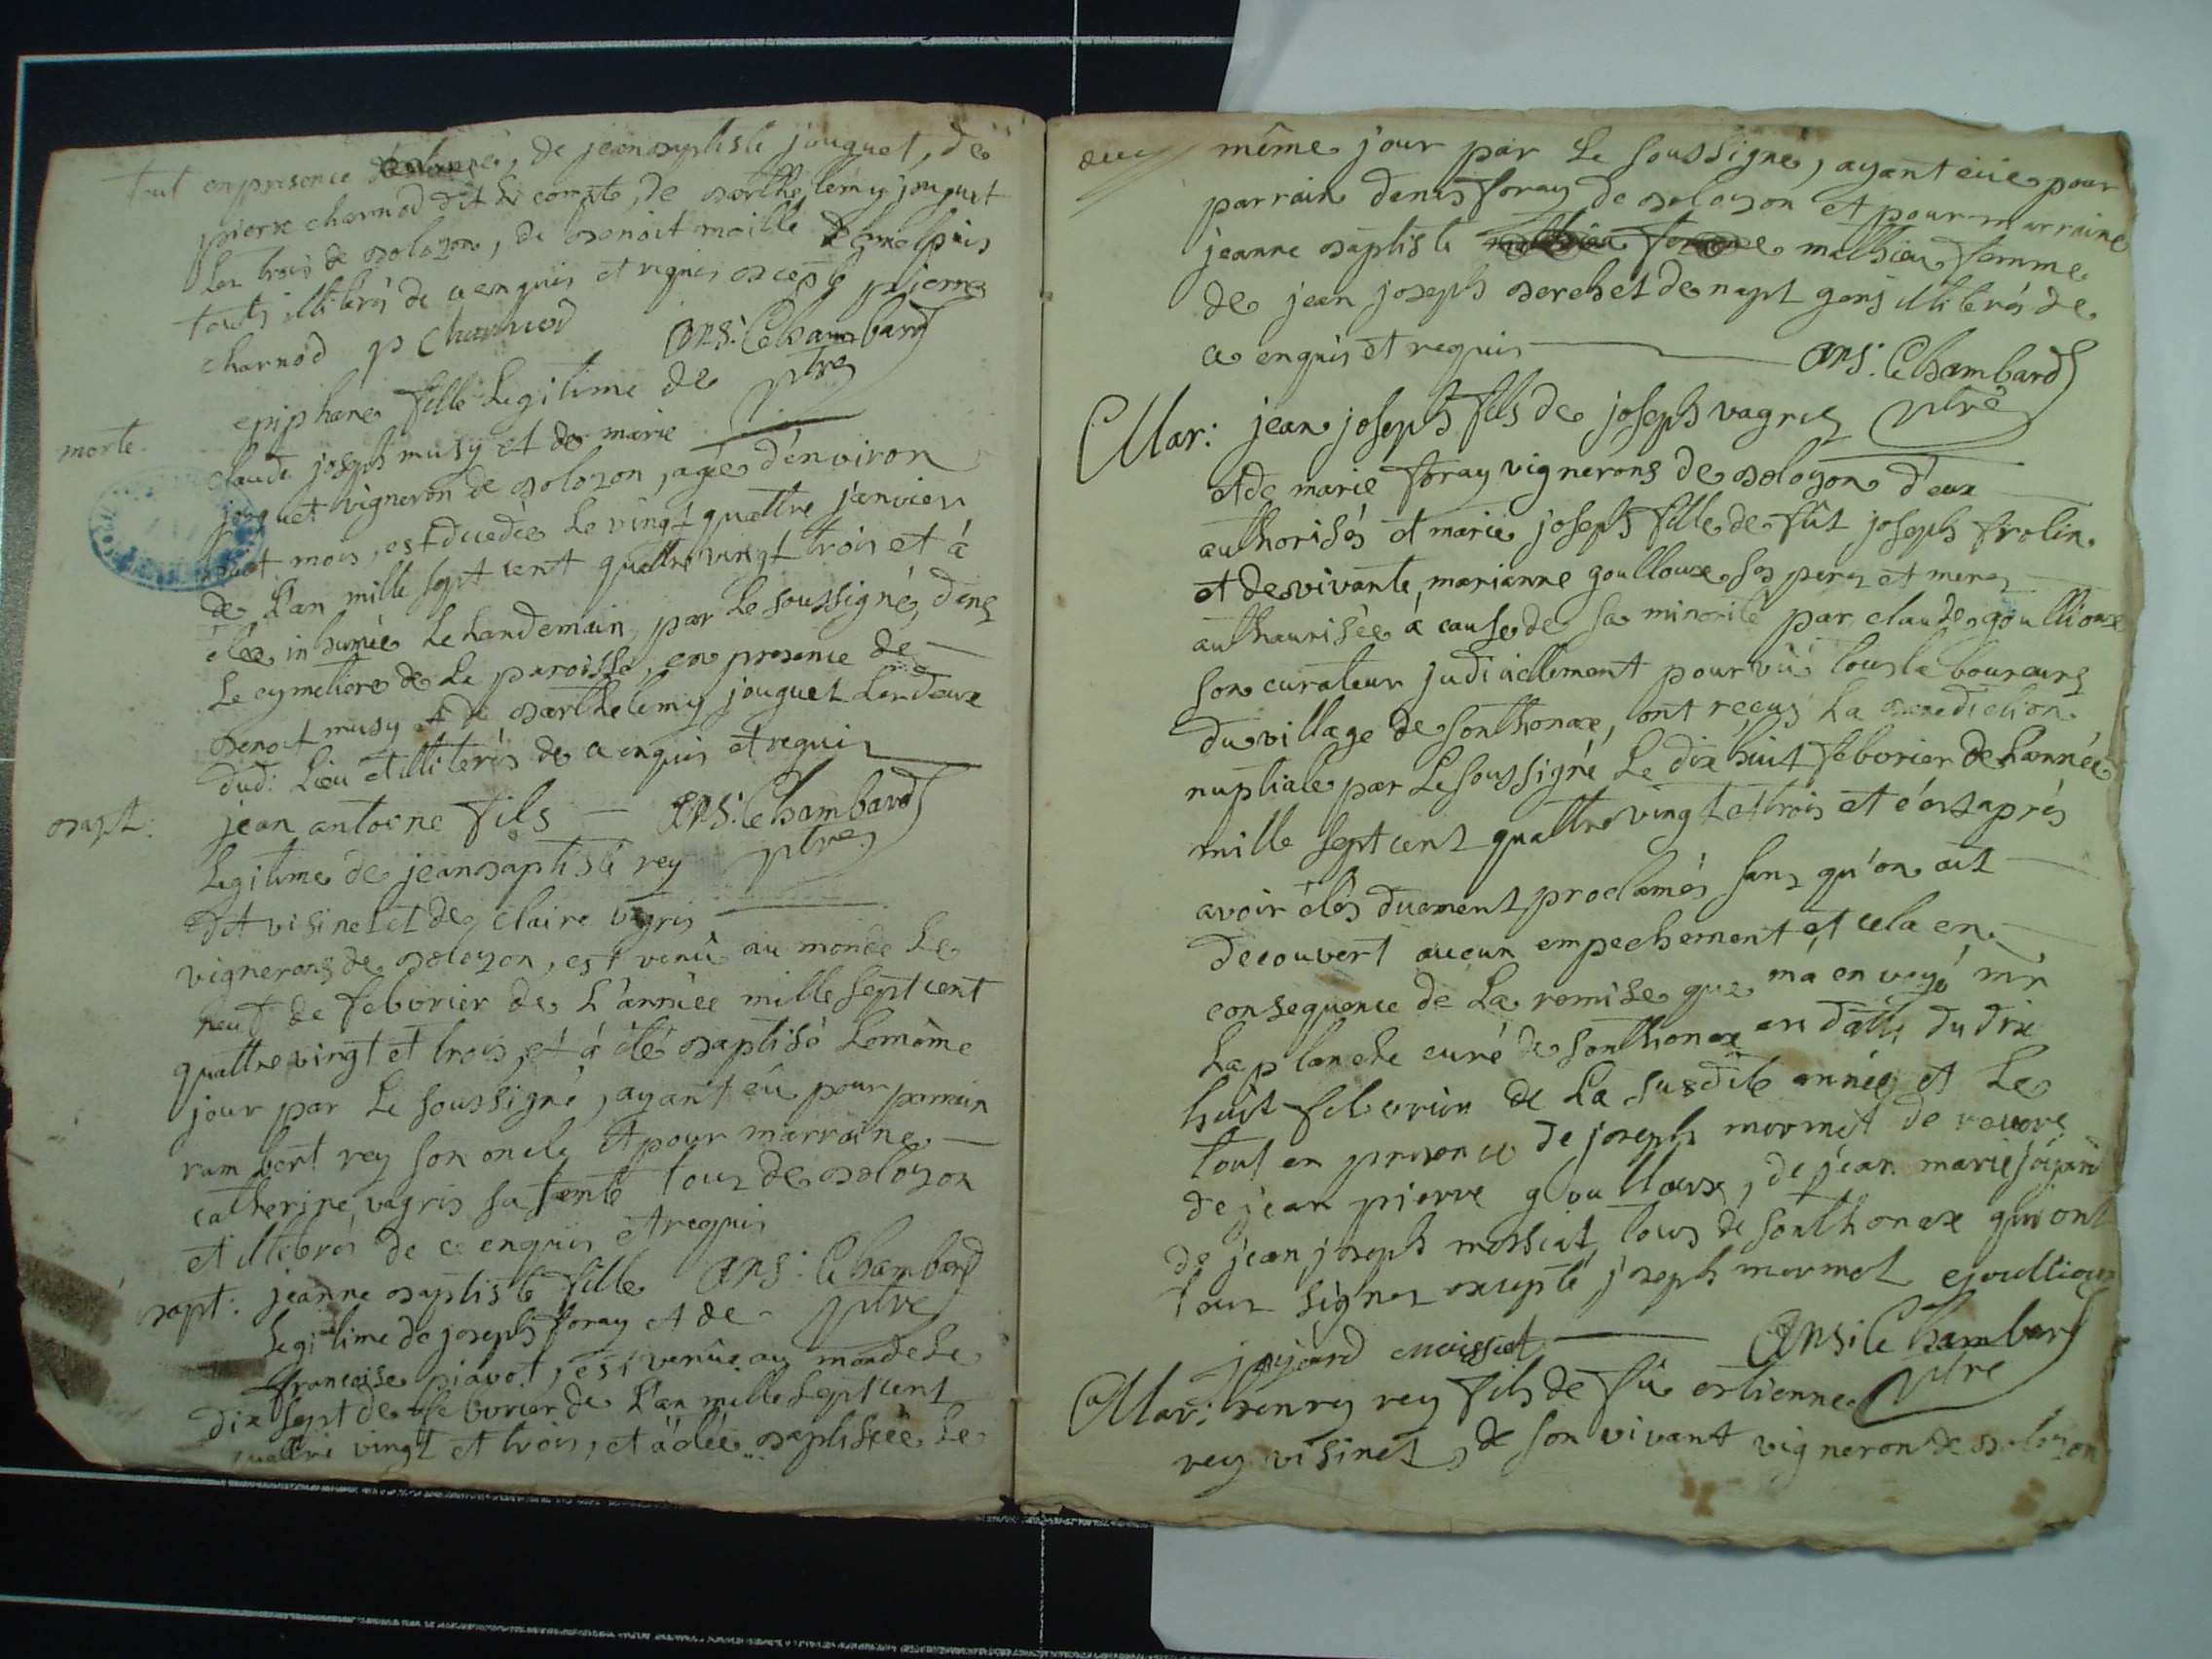 tout en presence de jean baptiste jouguet, de
pierre charnod dit le compte, de barthelemy jouguet
les trois de bolozon, de benoit maille
touts illiterés de ce enquis et requis except pierre
charnod p charnod ans: Chambard
ptre
morte. epiphane fille legitime de
claude joseph musy et de marie
jouguet vigneron de bolozon, agée d'environ
huit mois, est decedée le vingt quattre janvier
de l'an mille sept cent quattre vingt trois et à
étée inhumée le landemain par le soussigné, dans
le cymetiere de la paroisse, en presence de
benoit musy et de barthelemy jouguet les deux
dud: lieu et illiterés de ce enquis et requis
bapt: jean antoine fils ans: Chambard
ptre
legitime de jean baptiste rey
dit visinet et de claire vagris
vignerons de bolozon, est venû au monde le
neuf de febvrier de l'année mille sept cent
quattre vingt et trois, et à été baptisé le même
jour par le soussigné, ayant eû pour parrain
rambert rey son oncle et pour marraine
catherine vagris sa tante tous de bolozon
et illiterés de ce enquis et requis
bapt: jeanne baptiste fille ans: Chambard
ptre
legitime de joseph foray et de
francoise piavot, est venûe au monde le
dix sept de febvrier de l'an mille sept cent
quattre vingt et trois, et à étée baptisée le
même jour par le soussigné, ayant eûe pour
parrain denis foray de bolozon et pour marraine
jeanne baptiste mathieu femme
de jean joseph berchet de napt gens illiterés de
ce enquis et requis ans: Chambard
ptre
Mar: jean joseph fils de joseph vagris
et de marie foray vignerons de bolozon d'eux
authorisés et marie joseph fille de fût joseph frolin
et de vivante, marianne goulloux ses peres et meres
authaurisée à cause de sa minorité par claude goullioux
son curateur judiciellement pourvû tous laboureurs
du village de sonthonax, ont reçus la benediction
nuptiale par le soussigné le dix huit febvrier de l'année
mille sept cent quattre vingt et trois et c'est aprés
avoir étés duement proclamés sans qu'on ait
decouvert aucun empechement et cela en
consequence de la remise que m'a envoyé mr
laplanche curé de sonthonax en datte du dix
huit febvrier de la susdite année et le
tout en presence de joseph mermet de
de jean pierre goulloux, de jean marie jöyard
de jean joseph messiat tous de sonthonax qui ont
tous signes excepté joseph mermet goullioux
joyard moissiat ans: Chambard
ptre
Mar: henry rey fils de fû estienne
rey visinet, de son vivant vigneron de bolozon